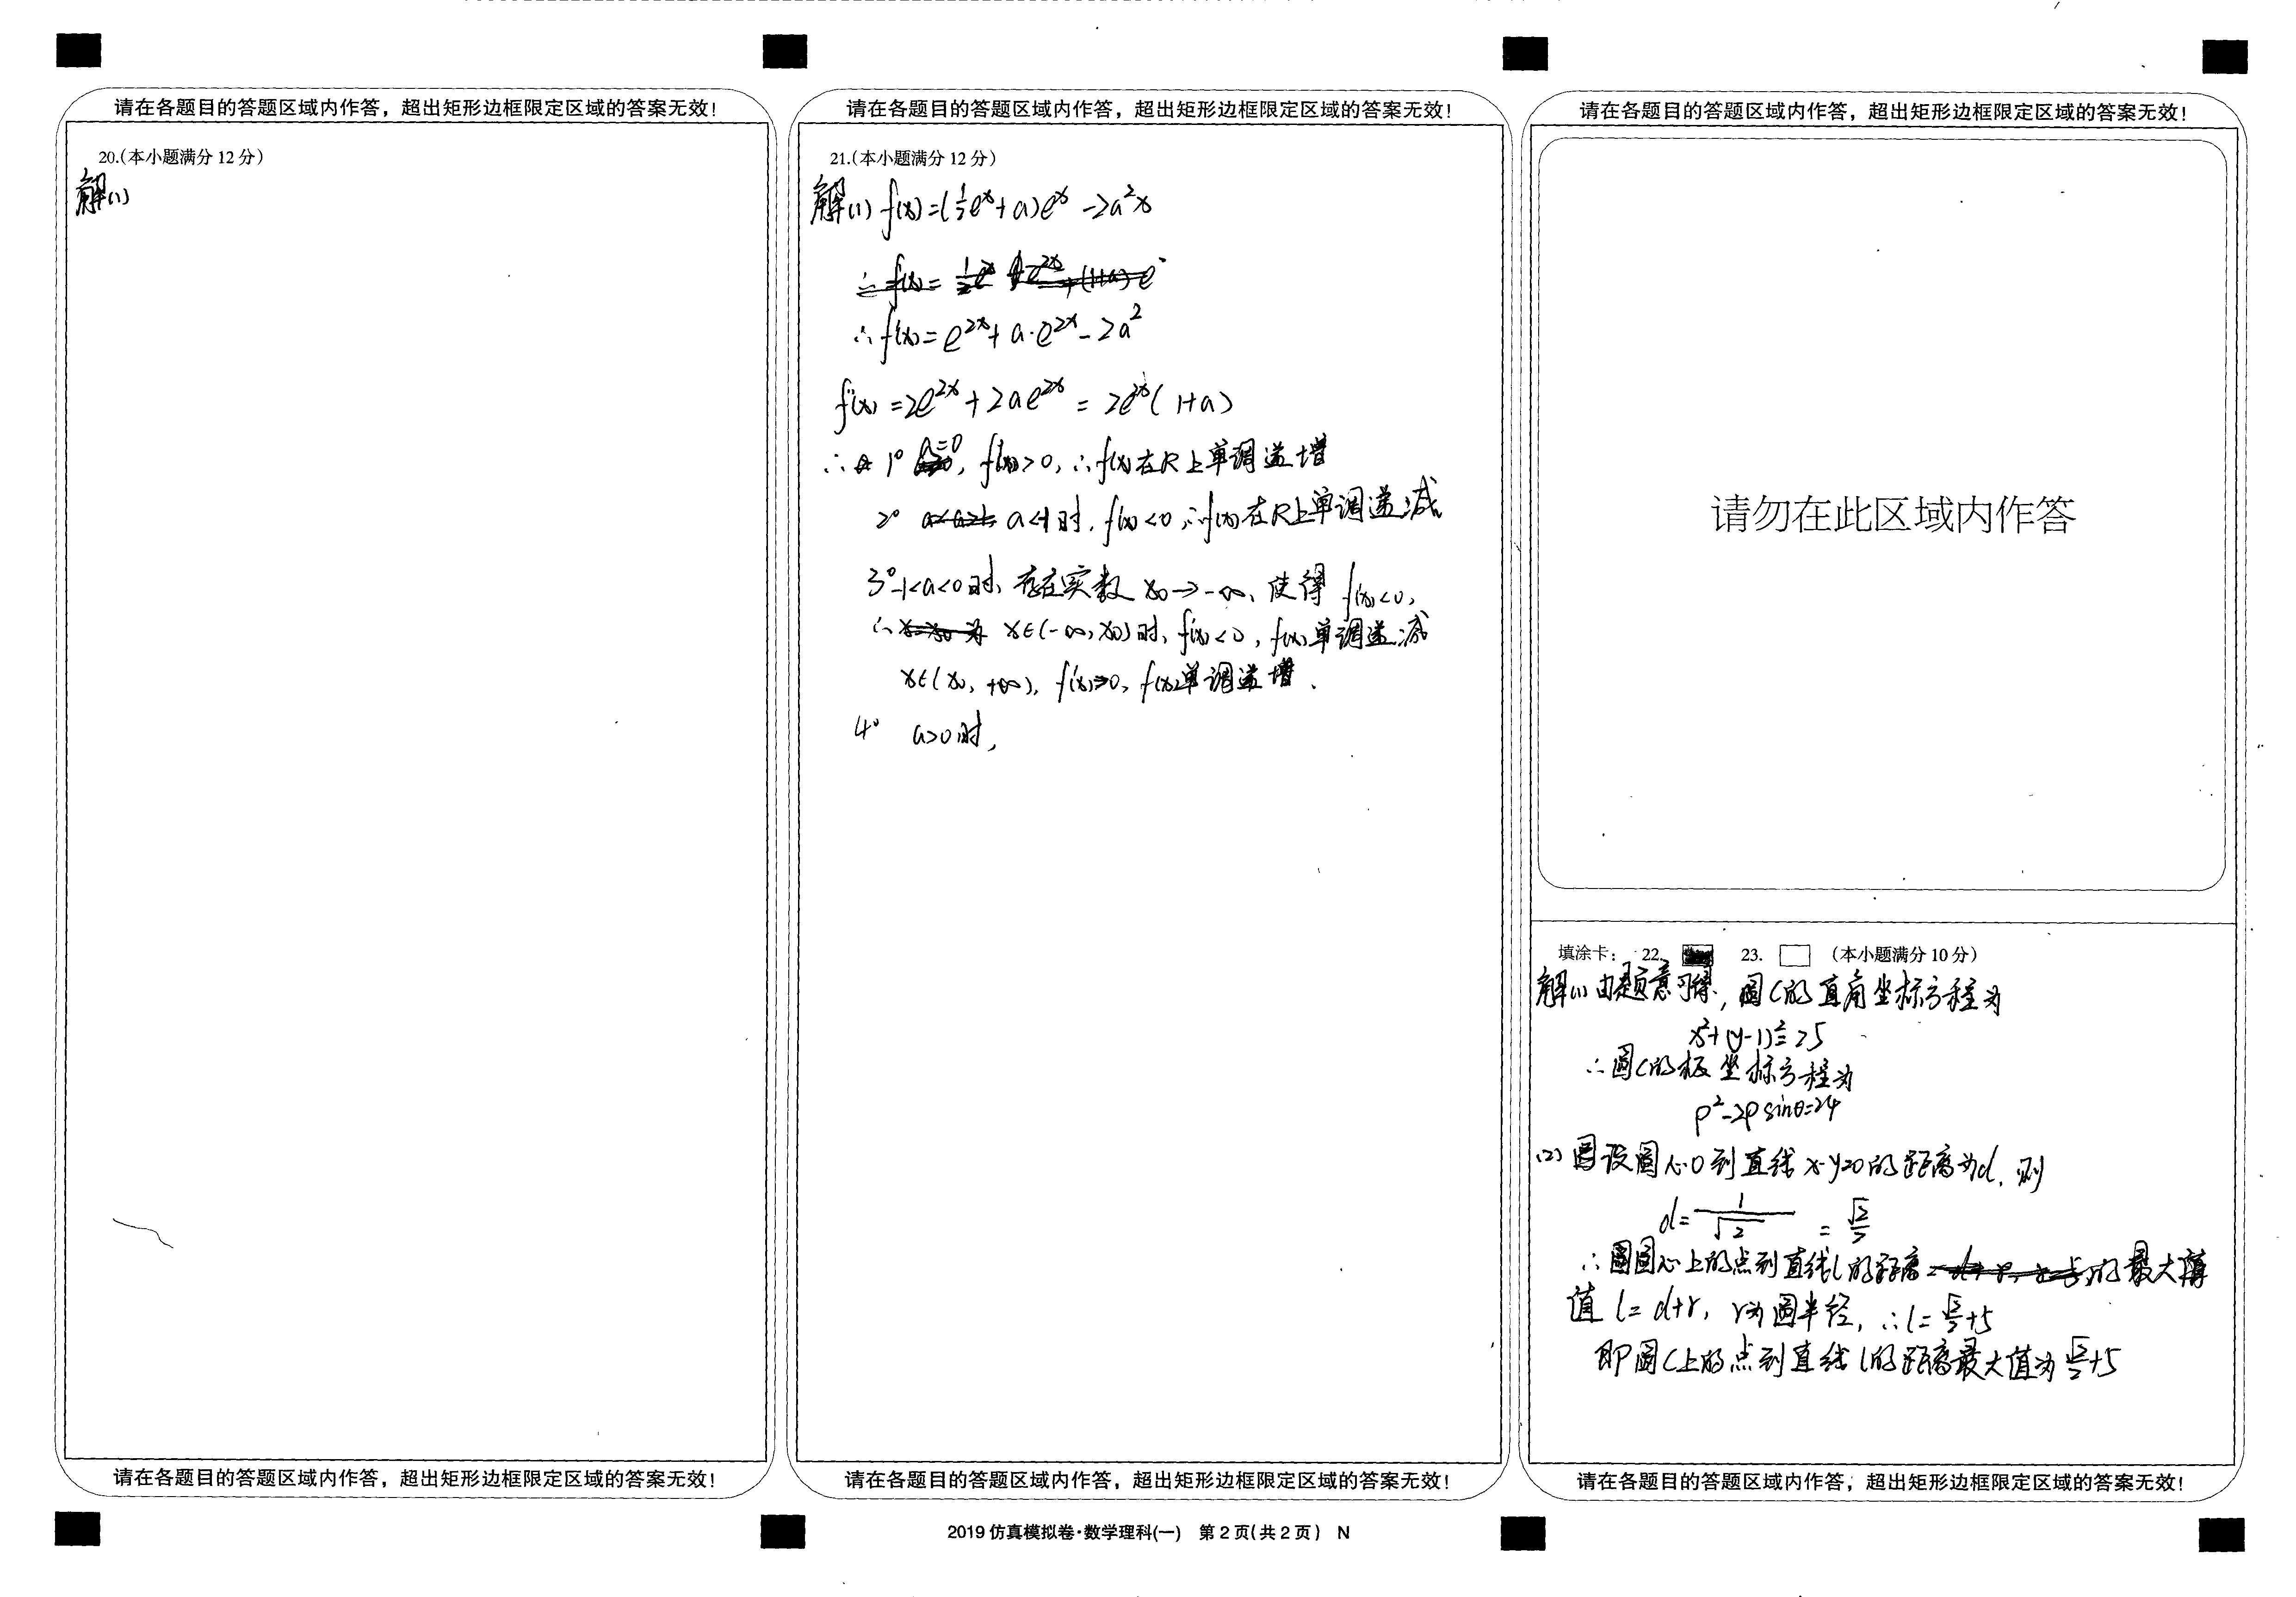 请在各题目的答题区域内作答，超出矩形边框限定区域的答案无效！
20.(本小题满分12分)
解(1)
请在各题目的答题区域内作答，超出矩形边框限定区域的答案无效！
请在各题目的答题区域内作答，超出矩形边框限定区域的答案无效！
21.(本小题满分12分)
解(1) f(x)=(½eˣ+a)eˣ-2a²x
∴f'(x)=e²ˣ+a·e²ˣ-2a²
f''(x)=2e²ˣ+2ae²ˣ=2e²ˣ(1+a)
∴ 1° a=0, f'(x)>0, ∴f(x)在R上单调递增
2° a<-1时, f'(x)<0, ∴f(x)在R上单调递减
3° -1<a<0时, 存在实数 x₀→-∞, 使得 f'(x)<0,
∴ x∈(-∞,x₀)时, f'(x)<0, f(x)单调递减
x∈(x₀,+∞), f'(x)>0, f(x)单调递增.
4° a>0时,
请在各题目的答题区域内作答，超出矩形边框限定区域的答案无效！
2019仿真模拟卷·数学理科(一) 第2页(共2页) N
请在各题目的答题区域内作答，超出矩形边框限定区域的答案无效！
请勿在此区域内作答
填涂卡： 22. 23. (本小题满分10分)
解(1)由题意可得, 圆C的直角坐标方程为
x²+(y-1)²=25
∴圆C的极坐标方程为
ρ²-2ρsinθ=24
(2) 圆设圆心O到直线x-y=0的距离为d, 则
d=1/√2=√2/2
∴圆圆心上的点到直线l的距离的最大
值l=d+r, r为圆半径, ∴l=√2/2+5
即圆C上的点到直线l的距离最大值为√2/2+5
请在各题目的答题区域内作答，超出矩形边框限定区域的答案无效！